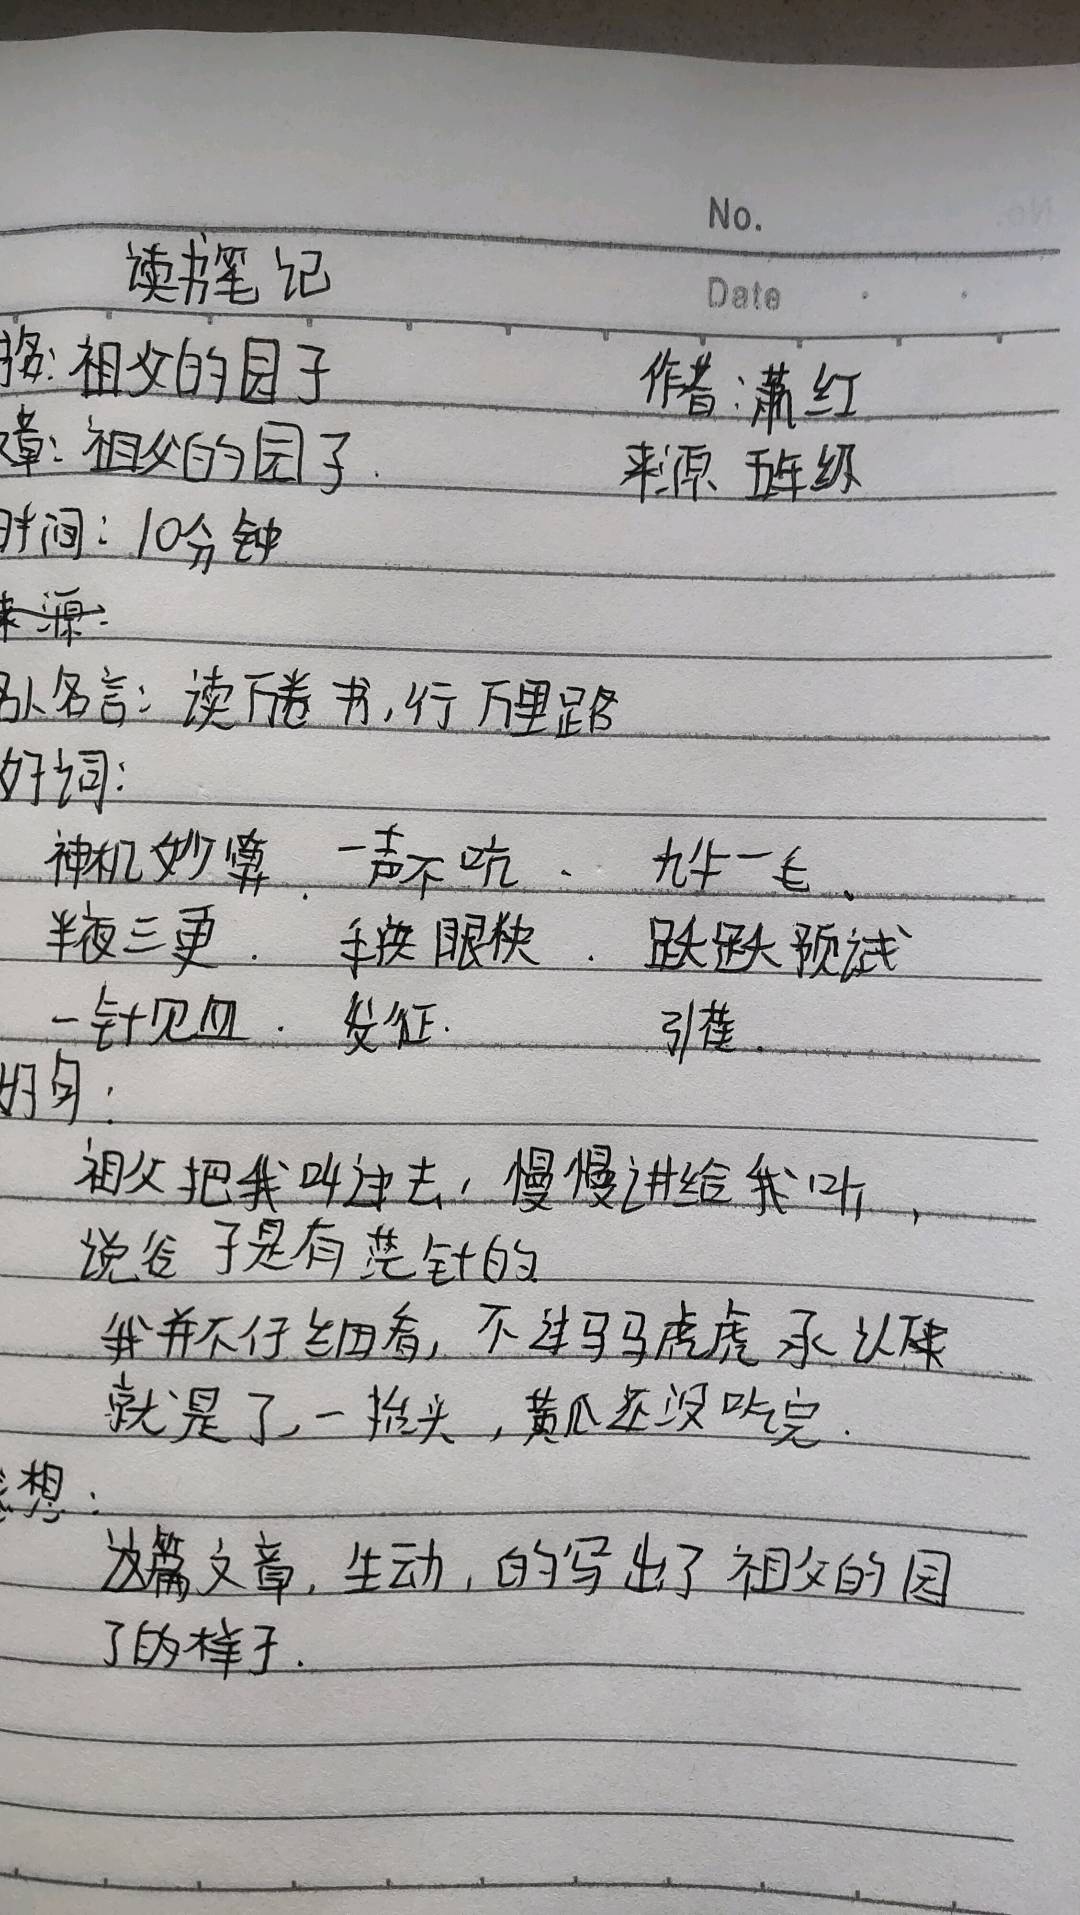 No.
读书笔记
Date
祖父的园子 作者:萧红
章:祖父的园子. 来源 五年级
时间:10分钟
来源:
名人名言:读万卷书,行万里路
好词:
神机妙算. 一声不吭. 九牛一毛.
半夜三更. 手快眼快. 跃跃预试
一针见血. 发怔. 引蔓.
好句:
祖父把我叫过去,慢慢讲给我听,
说谷子是有芒针的
我并不仔细看,不过马马虎虎承认
就是了,一抬头,黄瓜还没吃完.
感想:
这篇文章,生动,的写出了祖父的园
子的样子.